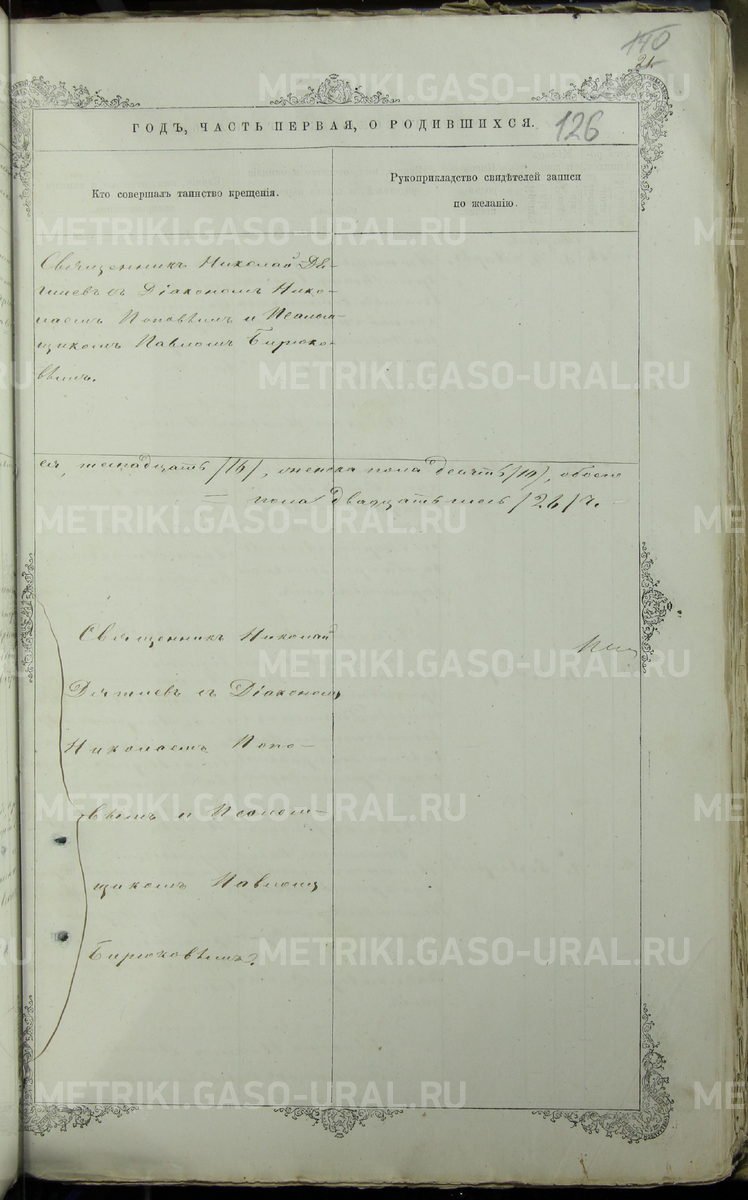 140
126
ГОДЪ, ЧАСТЬ ПЕРВАЯ, О РОДИВШИХСЯ.
Кто совершалъ таинство крещенія.
Рукоприкладство свидѣтелей записи
по желанію.
Священникъ Николай Дя-
гилевъ съ Діакономъ Нико-
лаемъ Поповымъ и Псалом-
щикомъ Павломъ Бирюко-
вымъ.
шестнадцать /16/, женска пола десять /10/, обоего
пола двадцать шесть /26/ ч.
Священникъ Николай
Дягилевъ съ Діакономъ
Николаемъ Попо-
вымъ и Псалом-
щикомъ Павломъ
Бирюковымъ.
METRIKI.GASO-URAL.RU